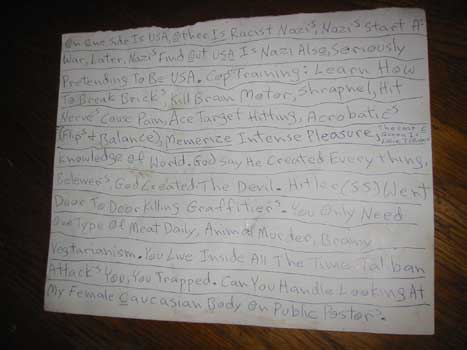 On One Side Is USA, Other Is Racist Nazi's, Nazi's Start A
War, Later, Nazi's Find Out USA Is Nazi Also, Seriously
Pretending To Be USA. Cop Training: Learn How
To Break Brick's, Kill Brain Motor, Shrapnel, Hit
Nerve's Cause Pain, Ace Target Hitting, Acrobatic's
(Flip's + Balance), Memerize Intense Pleasure,
Knowledge Of World. God Say He Created Everything,
Belewer's, God Created The Devil. Hitler (SS) Went
Door To Door Killing Graffitier's. You Only Need
One Type Of Meat Daily, Animal Murder,
Vegtarianism. You Live Inside All The Time, Taliban
Attack's You, You Trapped. Can You Handle Looking At
My Female Caucasian Body On Public Postor's.